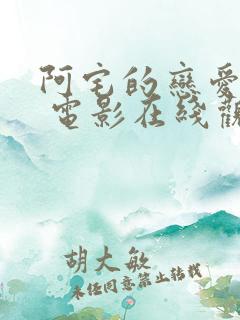 阿宅的戀愛
電影在线觀
胡大敏
未经同意禁止转载